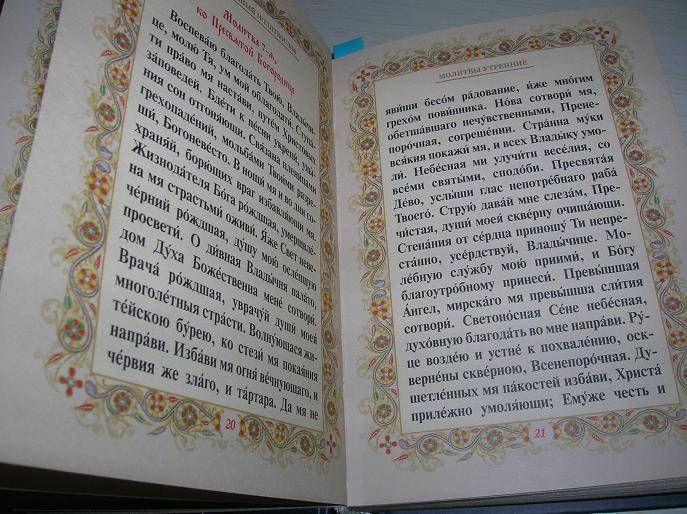 Молитва 7-я,
ко Пресвятой Богородице
Воспева́ю благода́ть Твою́, Влады́чи-
це, молю́ Тя, ум мой облагодати́. Ступа́-
ти пра́во мя наста́ви, путе́м Христо́вых
за́поведей. Бде́ти к пе́сни укрепи́, уны́-
ния сон отгоня́ющи. Свя́зана плени́цами
грехопаде́ний, мольба́ми Твои́ми разре-
ши́, Богоневе́сто. В нощи́ мя и во дни со-
храня́й, борю́щих враг избавля́ющи мя.
Жизнода́теля Бо́га ро́ждшая, умерщвле́-
на мя страстьми́ оживи́. Я́же Свет неве-
че́рний ро́ждшая, ду́шу мою́ осле́пшую
просвети́. О ди́вная Влады́чня пала́то,
дом Ду́ха Боже́ственна мене́ сотвори́.
Врача́ ро́ждшая, уврачу́й души́ моея́
многоле́тныя стра́сти. Волну́ющася жи-
те́йскою бу́рею, ко стези́ мя покая́ния
напра́ви. Изба́ви мя огня́ ве́чнующаго, и
че́рвия же зла́го, и та́ртара. Да мя не
20
МОЛИТВЫ УТРЕННИЕ
яви́ши бесо́м ра́дование, и́же мно́гим
грехо́м пови́нника. Но́ва сотвори́ мя,
обетша́вшаго нечу́вственными, Прене-
поро́чная, согреше́нии. Стра́нна му́ки
вся́кия покажи́ мя, и всех Влады́ку умо-
ли́. Небе́сная ми улучи́ти весе́лия, со
все́ми святы́ми, сподо́би. Пресвята́я
Де́во, услы́ши глас непотре́бнаго раба́
Твоего́. Струю́ дава́й мне слеза́м, Пре-
чи́стая, души́ моея́ скве́рну очища́ющи.
Стена́ния от се́рдца приношу́ Ти непре-
ста́нно, усе́рдствуй, Влады́чице. Мо-
ле́бную слу́жбу мою́ приими́, и Бо́гу
благоутро́бному принеси́. Превы́шшая
А́нгел, мирска́го мя превы́шша сли́тия
сотвори́. Светоно́сная Се́не небе́сная,
духо́вную благода́ть во мне напра́ви. Ру́-
це возде́ю и устне́ к похвале́нию, оск-
верне́ны скве́рною, Всенепоро́чная. Ду-
шетле́нных мя па́костей изба́ви, Христа́
приле́жно умоля́ющи; Ему́же честь и
21